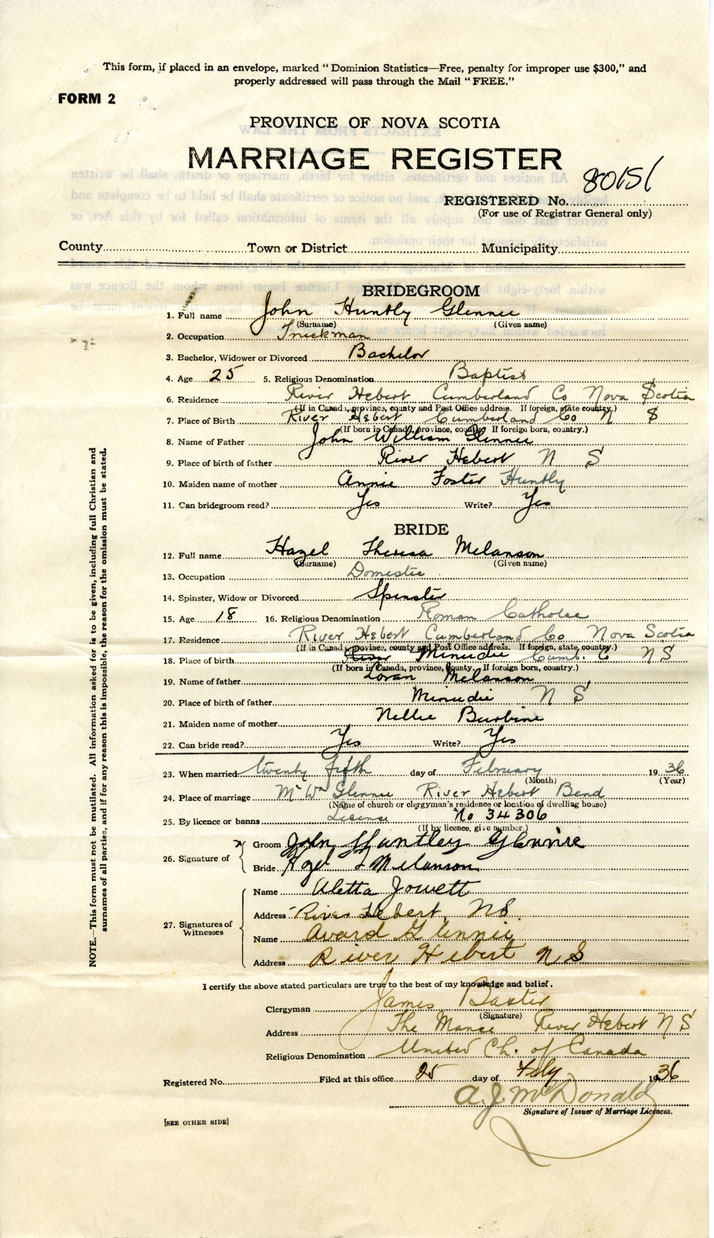 This form, if placed in an envelope, marked "Dominion Statistics—Free, penalty for improper use $300," and
properly addressed will pass through the Mail "FREE."
FORM 2
PROVINCE OF NOVA SCOTIA
MARRIAGE REGISTER
REGISTERED No. 80151
(For use of Registrar General only)
County Town or District Municipality
BRIDEGROOM
1. Full name John Huntly Glennie
(Surname) (Given name)
2. Occupation Truckman
3. Bachelor, Widower or Divorced Bachelor
4. Age 25 5. Religious Denomination Baptist
6. Residence River Hebert Cumberland Co Nova Scotia
(If in Canada, province, county and Post Office address. If foreign, state country.)
7. Place of Birth River Hebert Cumberland Co N S
(If born in Canada, province, county. If foreign born, country.)
8. Name of Father John William Glennie
9. Place of birth of father River Hebert N S
10. Maiden name of mother Annie Foster Huntly
11. Can bridegroom read? Yes Write? Yes
BRIDE
12. Full name Hazel Theresa Melanson
(Surname) (Given name)
13. Occupation Domestic
14. Spinster, Widow or Divorced Spinster
15. Age 18 16. Religious Denomination Roman Catholic
17. Residence River Hebert Cumberland Co Nova Scotia
(If in Canada, province, county and Post Office address. If foreign, state, country.)
18. Place of birth Minudie Cumb. C N S
(If born in Canada, province, county. If foreign born, country.)
19. Name of father Loran Melanson
20. Place of birth of father Minudie N S
21. Maiden name of mother Nellie Burbine
22. Can bride read? Yes Write? Yes
23. When married twenty fifth day of February 1936
(Month) (Year)
24. Place of marriage Mr Wm Glennie River Hebert Bend
(Name of church or clergyman's residence or location of dwelling house)
25. By licence or banns License No 34306
(If by licence, give number.)
26. Signature of
x Groom John Huntley Glennie
Bride Hazel T Melanson
27. Signatures of Witnesses
Name Aletta Jowett
Address River Hebert, NS.
Name Avard Glennie
Address River Hebert N S
I certify the above stated particulars are true to the best of my knowledge and belief.
Clergyman James Baxter
(Signature)
Address The Manse River Hebert N S
Religious Denomination United Ch. of Canada
Registered No. Filed at this office 25 day of Feby 1936
A. J. McDonald
Signature of Issuer of Marriage Licences.
[SEE OTHER SIDE]
NOTE.—This form must not be mutilated. All information asked for is to be given, including full Christian and
surnames of all parties, and if for any reason this is impossible, the reason for the omission must be stated.